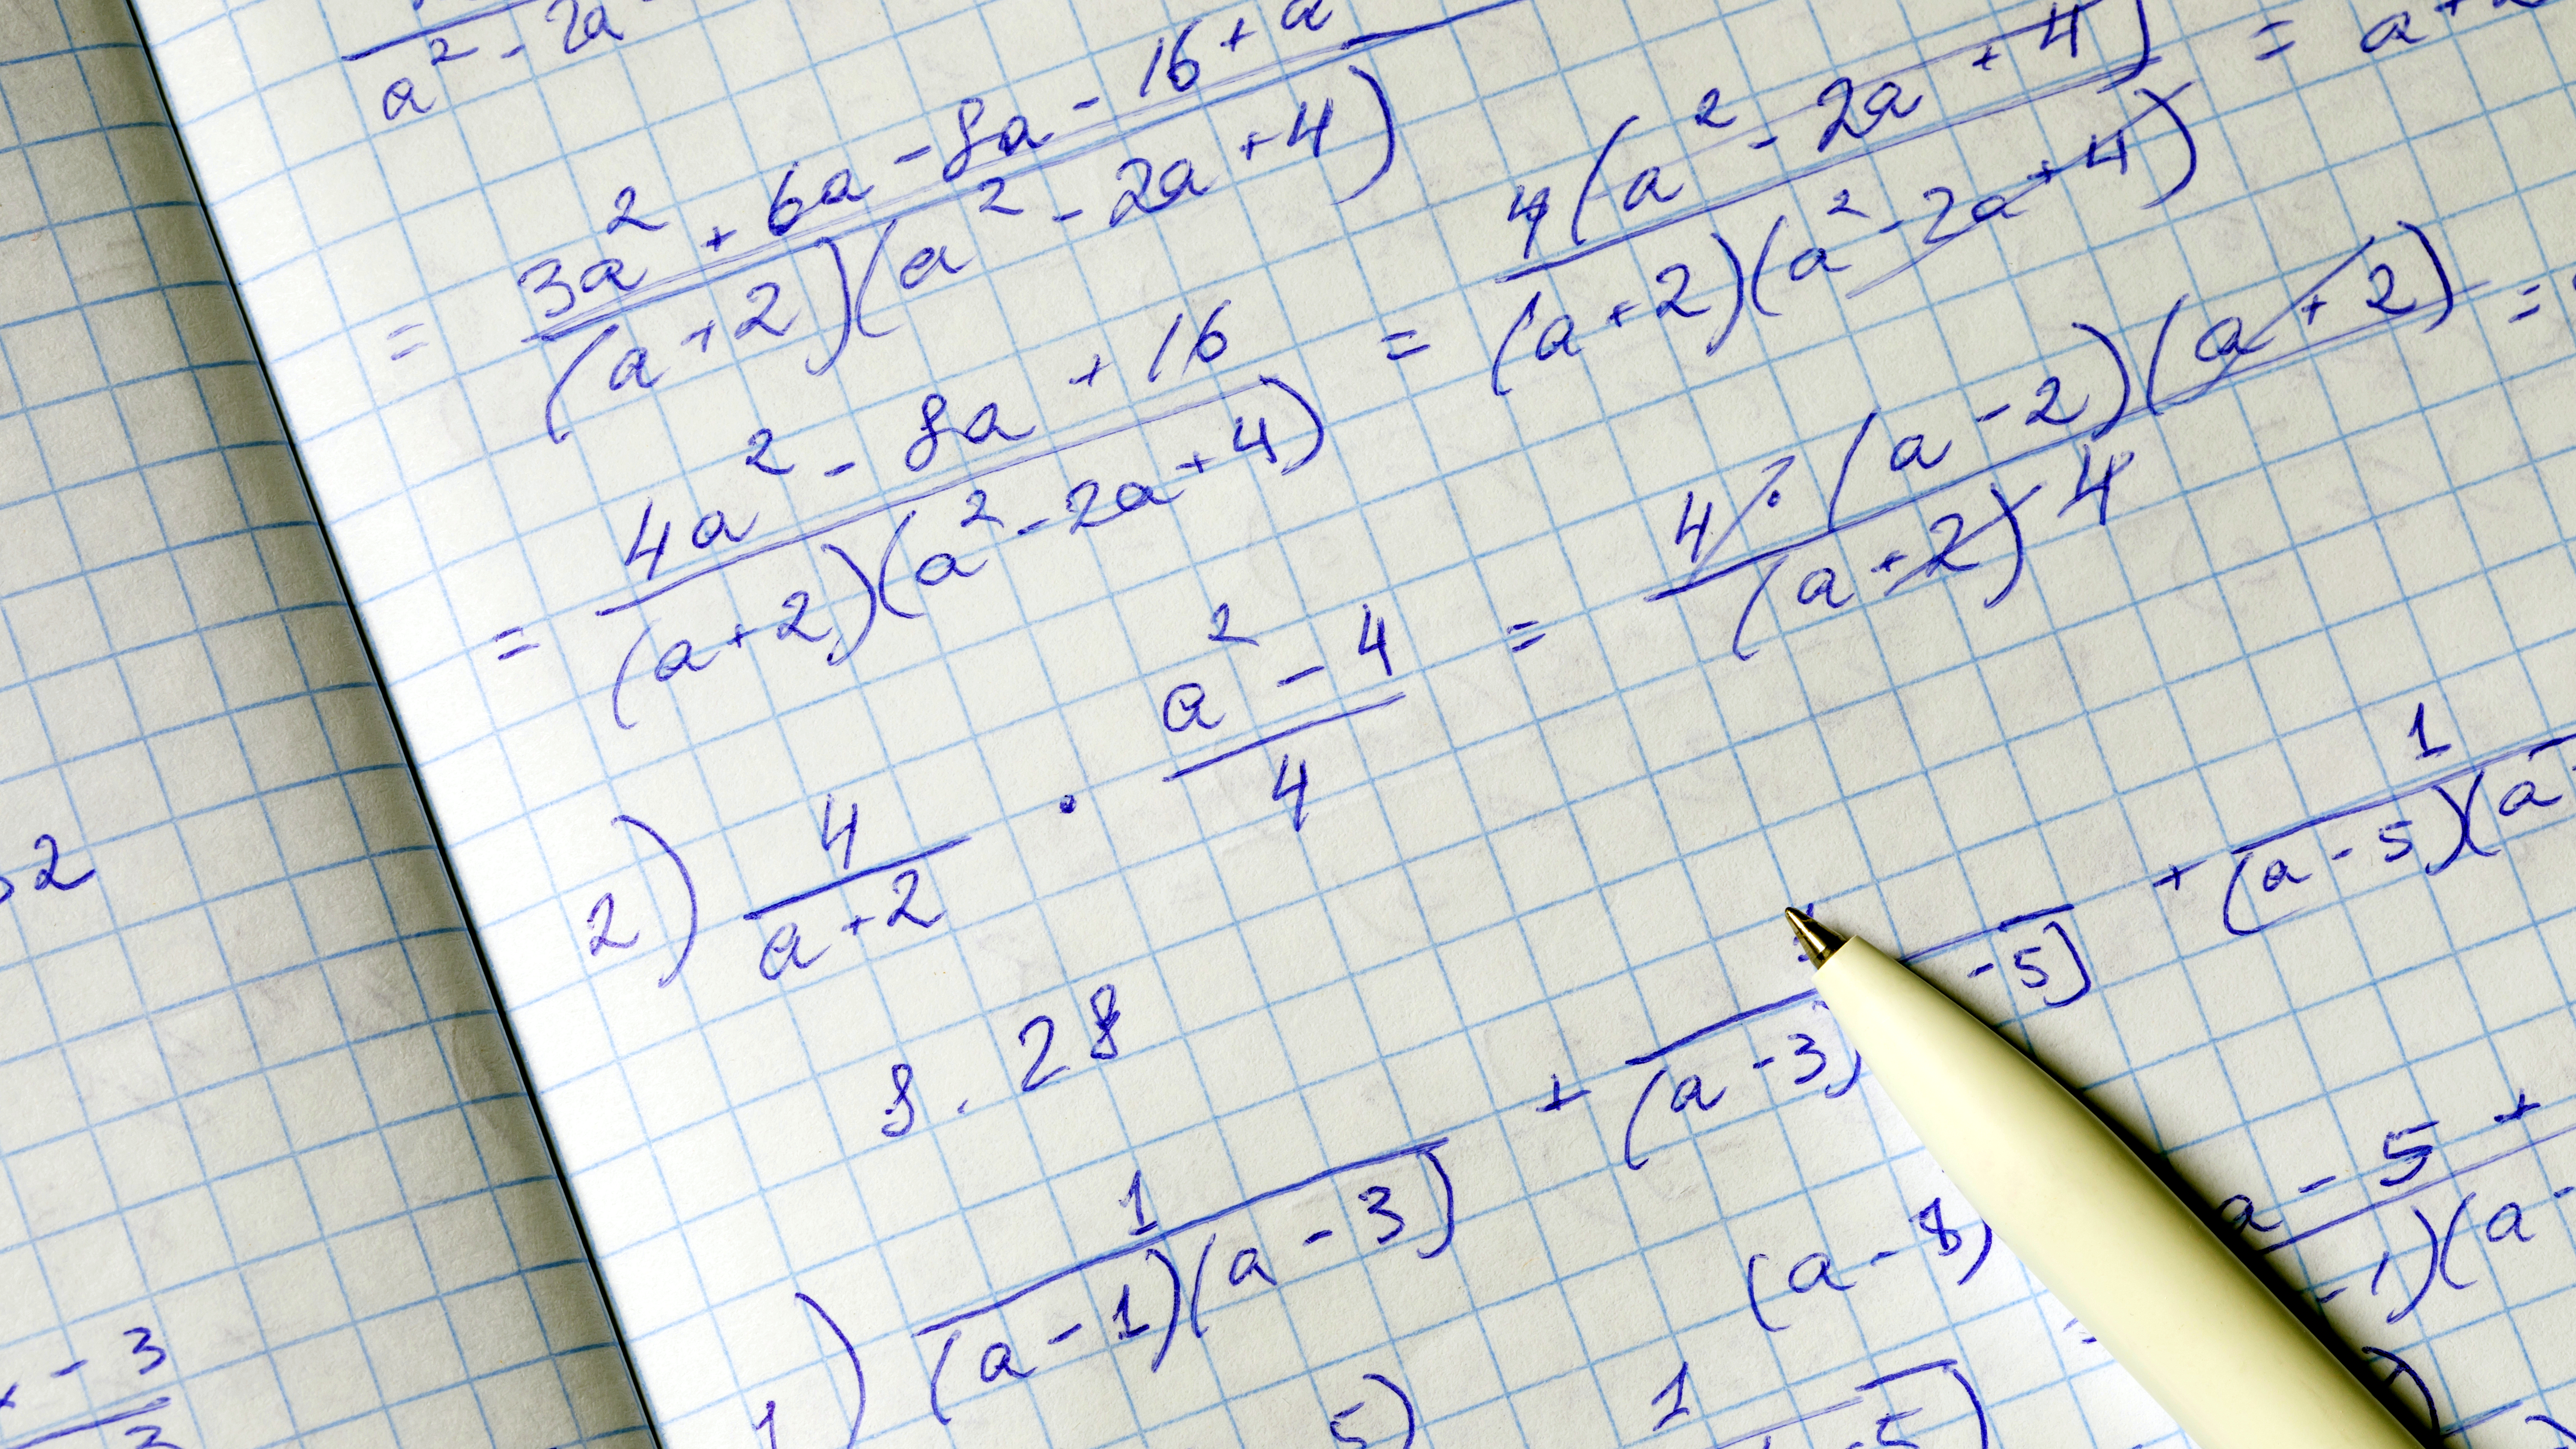 a² - 2a
= (3a² + 6a - 8a - 16 + a) / ((a+2)(a² - 2a + 4))
= (4a² - 8a + 16) / ((a+2)(a² - 2a + 4)) = 4(a² - 2a + 4) / ((a+2)(a² - 2a + 4)) = a+2
2) 4/(a+2) · (a² - 4)/4 = 4 · (a - 2)(a + 2) / ((a + 2) 4) =
8. 28
1) 1/((a - 1)(a - 3)) + /((a - 3) - 5) + 1/((a - 5)(a
(a - 8) a - 5 +
-1)(a -
5) 1
- 5)
2
- 3
3